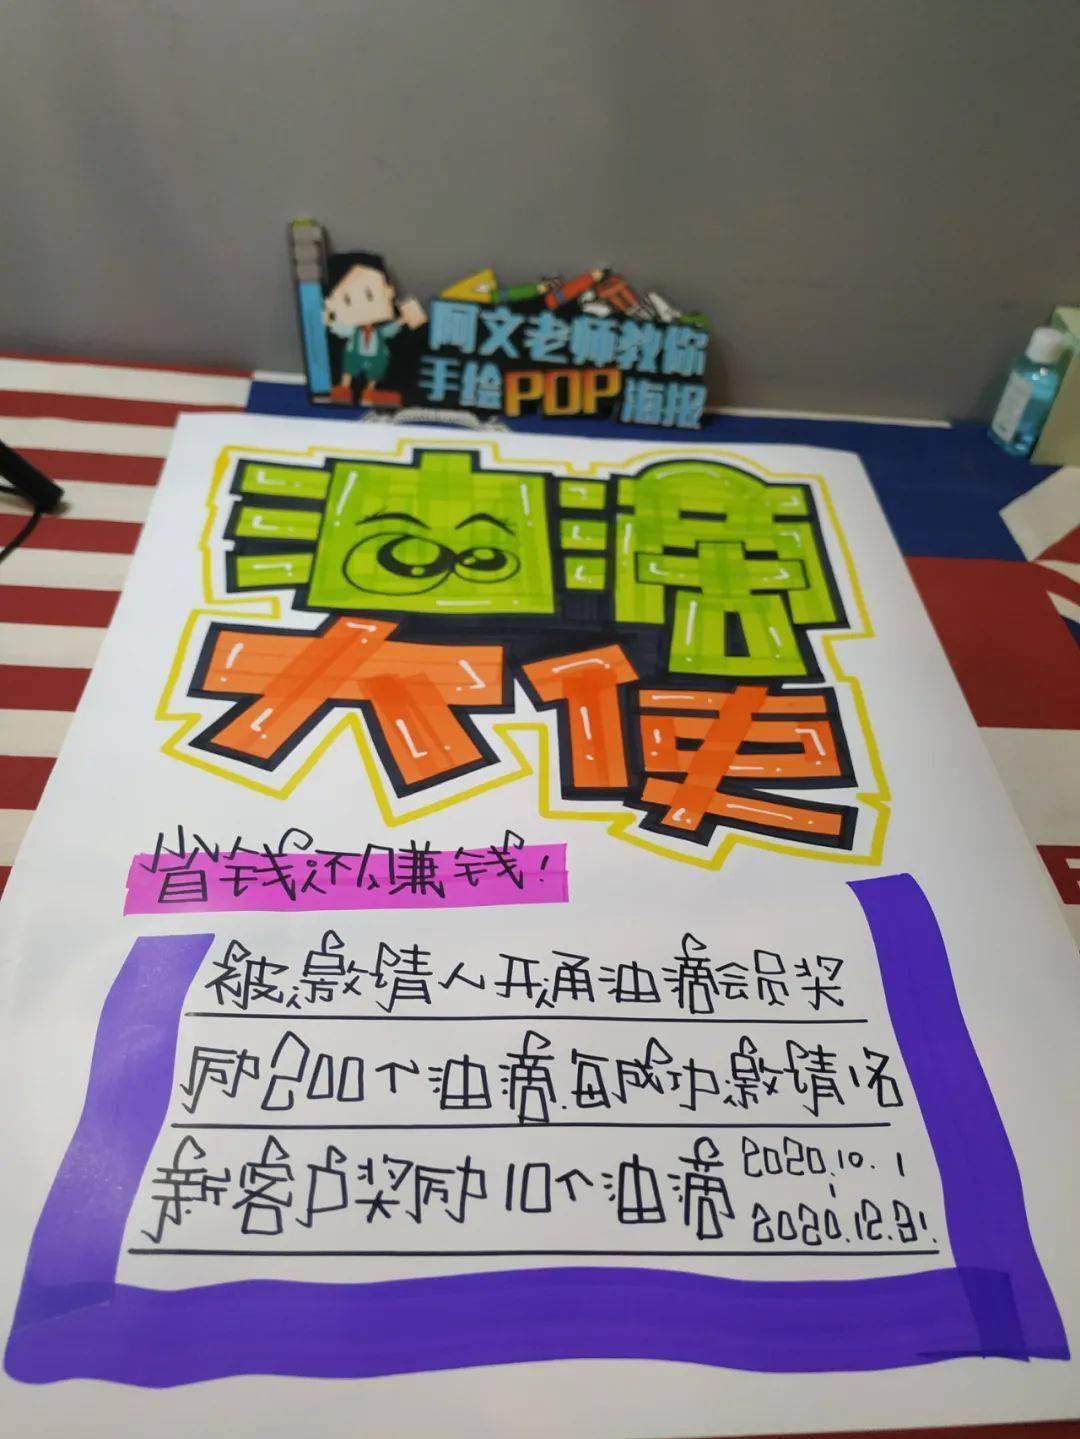 阿文老师教你
手绘POP海报
油滴
大使
省钱还又赚钱!
被邀请人开通油滴会员奖
励200个油滴.每成功邀请1名
新客户奖励10个油滴
2020.10.1
2020.12.31.